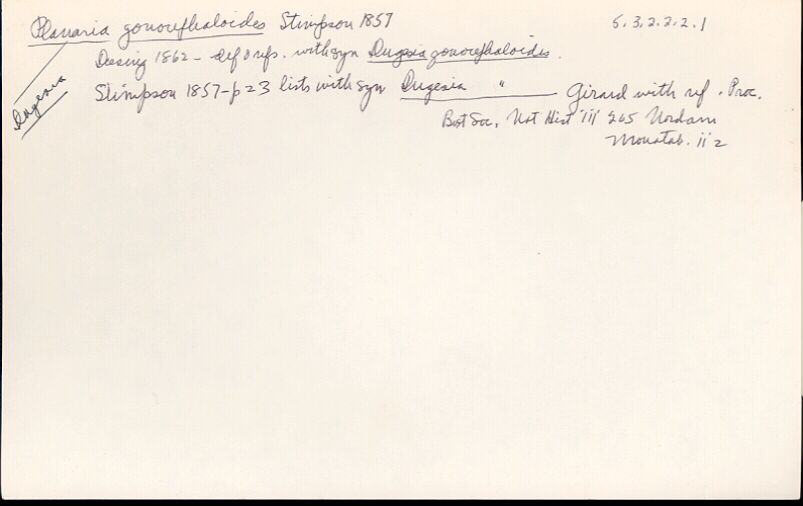 Planaria gonocephaloides Stimpson 1857 5.3.2.2.2.1
Diesing 1862 - def & refs. with syn Dugesia gonocephaloides.
Dugesia
Stimpson 1857 - p 23 lists with syn Dugesia " Girard with ref. Proc.
Bost Soc. Nat Hist iii 265 Nordam
Monatsb. ii 2